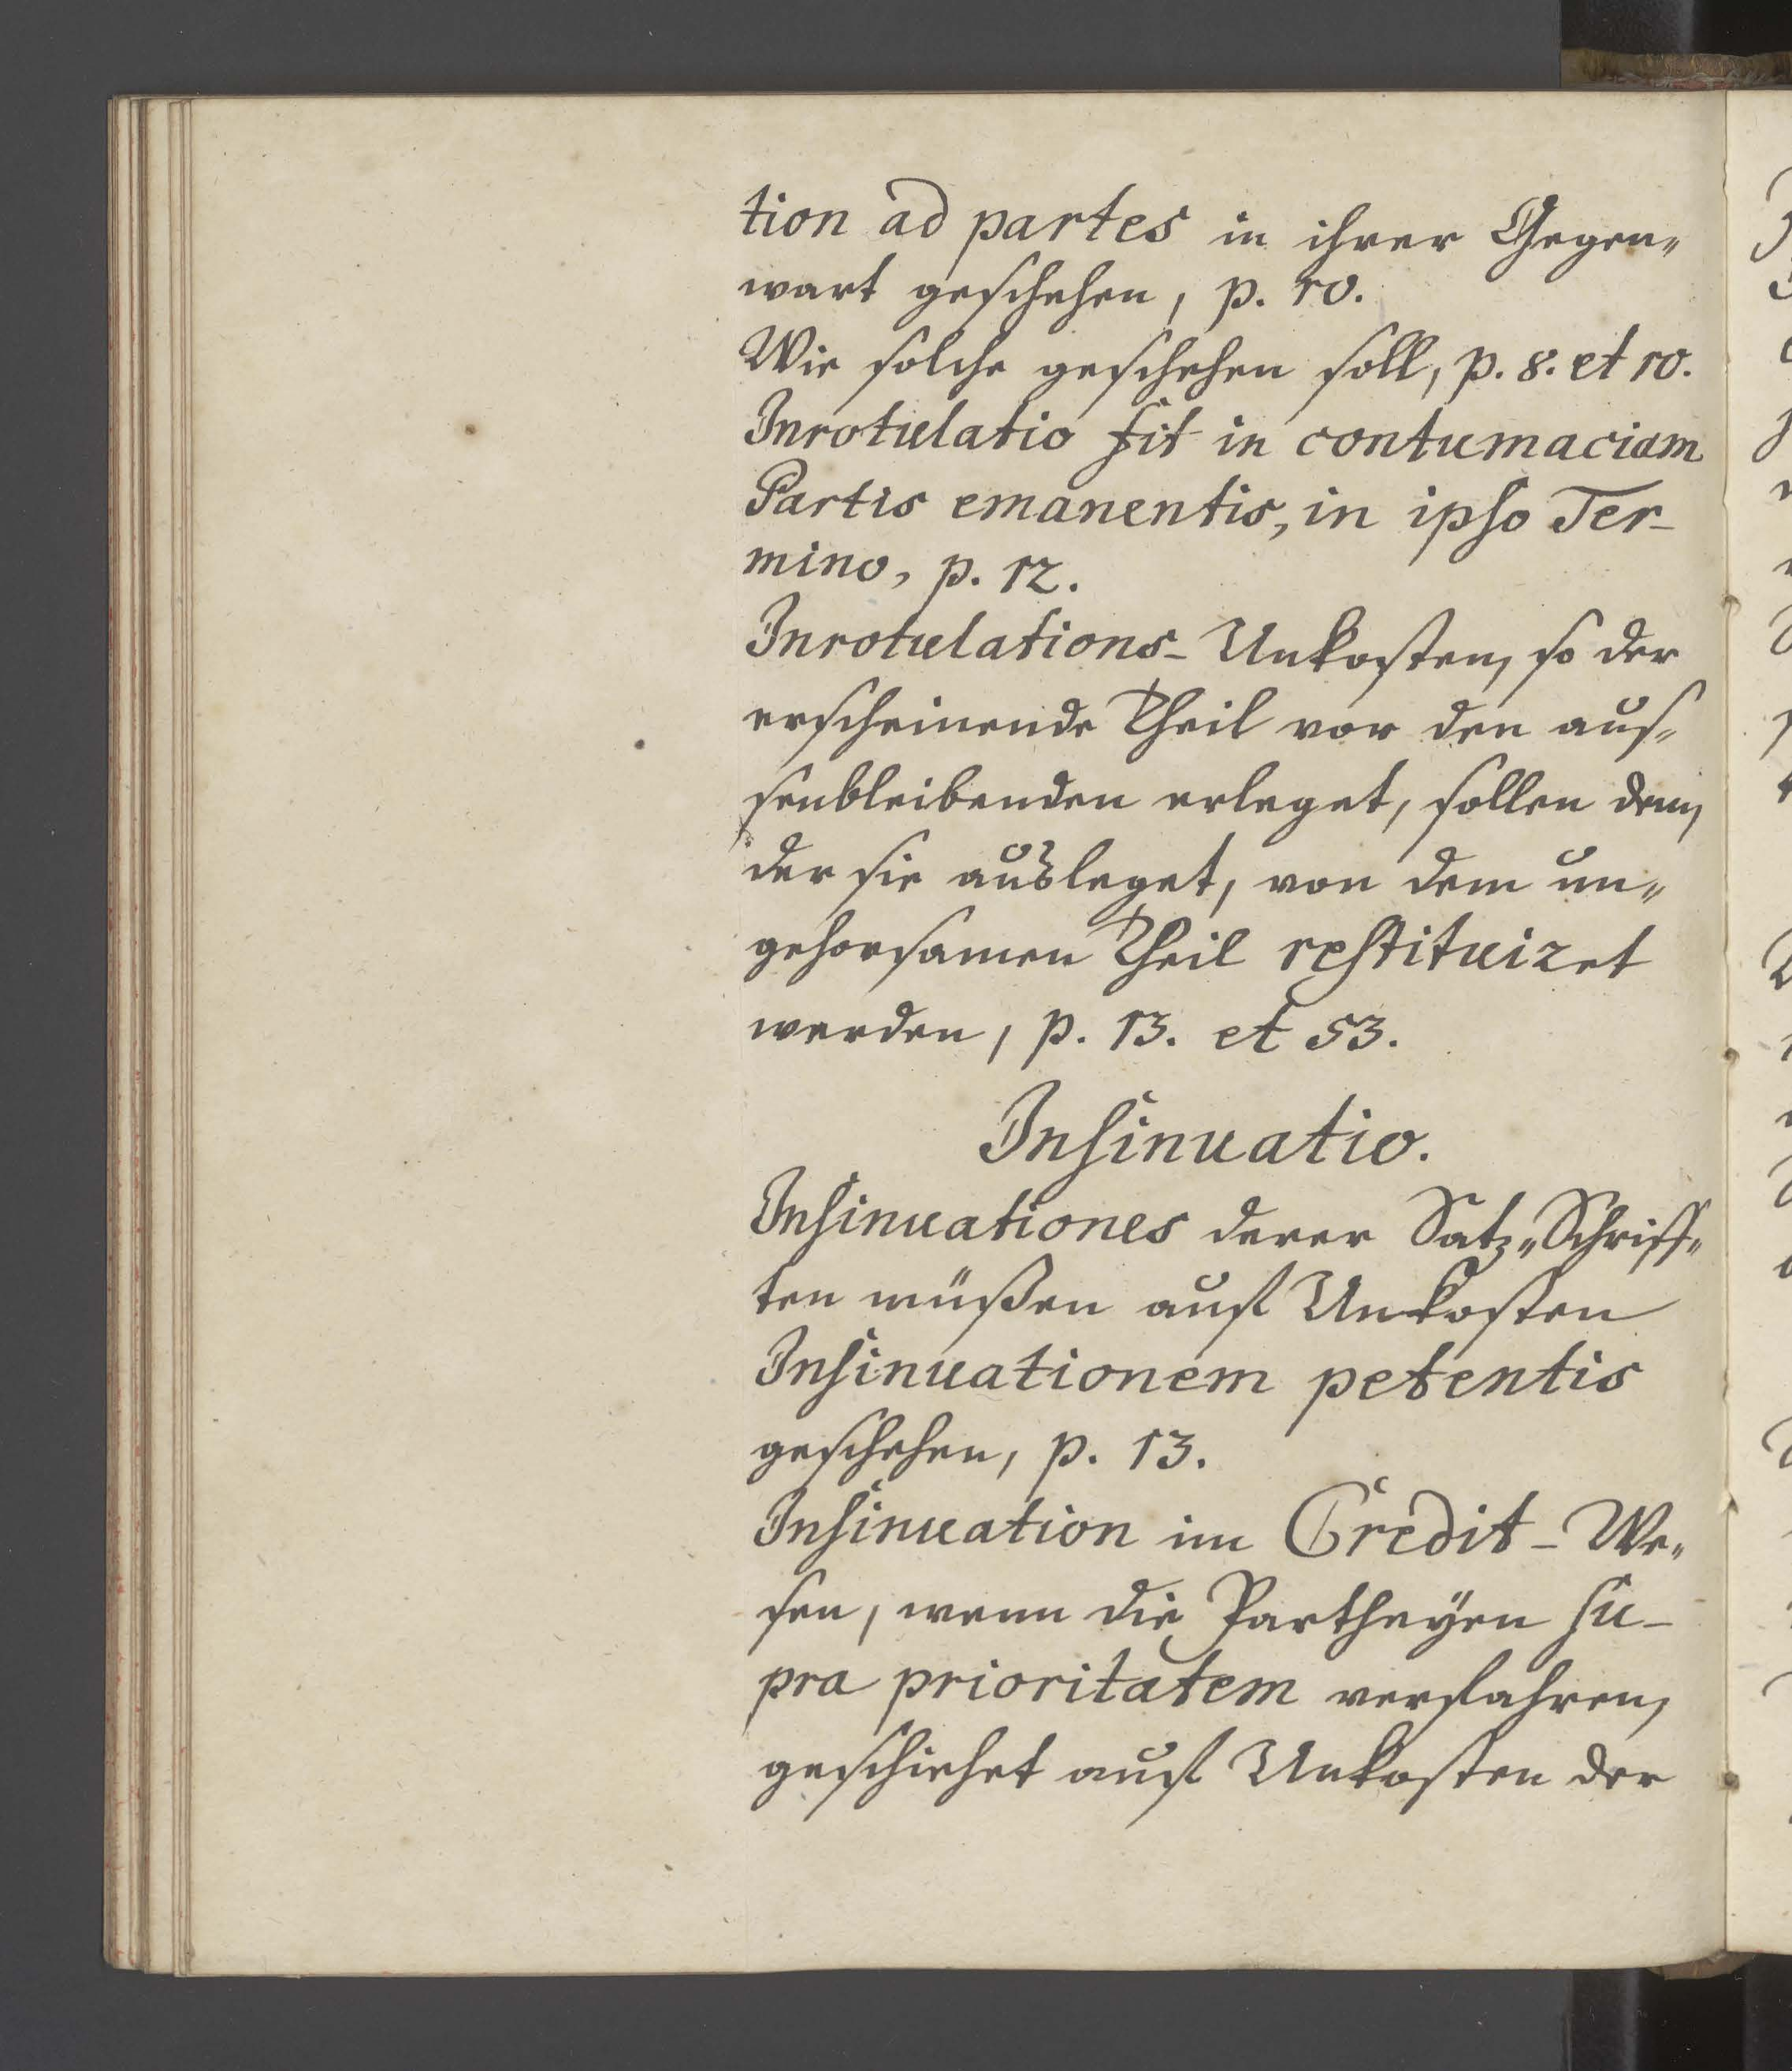 tion ad partes in ihrer Gegen„
wart geschehen, p. 10.
Wie solche geschehen soll, p. 8. et 10.
Inrotulatio fit in contumaciam
Partis emanentis, in ipso Ter-
mino, p. 12.
Inrotulations-Unkosten, so der
erscheinende Theil vor den aus„
senbleibenden erleget, sollen dem,
der sie ausleget, von dem un„
gehorsamen Theil restituiret
werden, p. 13. et 53.
Insinuatio.
Insinuationes derer Satz„Schriff„
ten müßen auf Unkosten
Insinuationem petentis
geschehen, p. 13.
Insinuation im Credit-We„
sen, wenn die Partheyen su-
pra prioritatem verfahren,
geschiehet auf Unkosten der